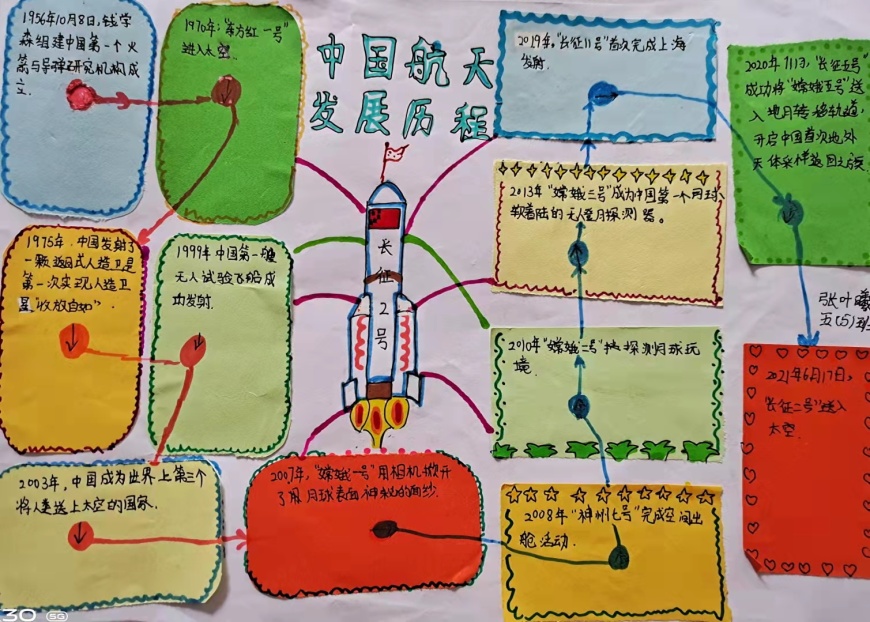 中国航天
发展历程
1956年10月8日,钱学
森组建中国第一个火
箭与导弹研究机构成
立.
1970年:"东方红一号"
进入太空.
1975年,中国发射了
一颗返回式人造卫星
第一次实现人造卫
星"收放自如"
1999年中国第一艘
无人试验飞船成
功发射.
2003年,中国成为世界上第三个
将人类送上太空的国家.
2007年,"嫦娥一号"用相机掀开
了月球表面神秘的面纱.
2008年"神州七号"完成空间出
舱活动.
2010年"嫦娥二号" 探测月球环
境.
2013年"嫦娥三号"成为中国第一个月球
软着陆的无人登月探测器。
2019年,"长征11号"首次完成上海
发射.
2020年11月,"长征五号"
成功将"嫦娥五号"送
入地月转移轨道,
开启中国首次地外
天体采样返回之旅
2021年6月17日,
"长征二号"送入
太空.
长征2号
张叶曦
五(5)班
30 5G